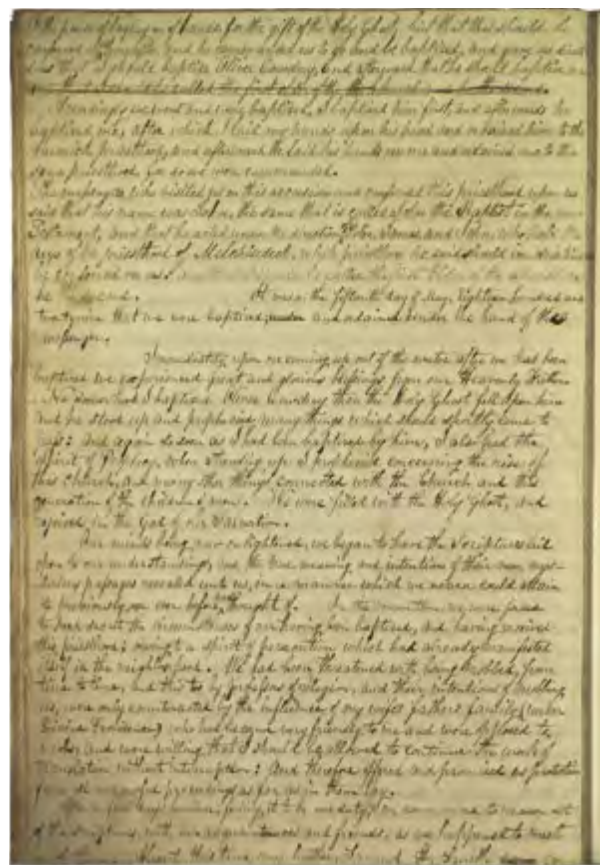 the power of laying on of hands, for the gift of the Holy Ghost, but that this should be
conferred on us hereafter and he commanded us to go and be baptized, and gave us direc
tions that I should baptize Oliver Cowdery, and afterward that he should baptize me
Accordingly we went and were baptized, I baptized him first, and afterwards he
baptized me, after which I laid my hands upon his head and ordained him to the
Aaronick priesthood, and afterward he laid his hands on me and ordained me to the
same priesthood, for so we were commanded.
The messenger who visited us on this occasion and conferred this priesthood upon us
said that his name was John, the same that is called John the Baptist in the new
Testament, and that he acted under the direction of Peter, James, and John, who held the
keys of the priesthood of Melchisedeck, which priesthood he said should in due time
be conferred on us.
be second. It was on the fifteenth day of May, Eighteen hundred and
twenty nine that we were baptized, and ordained under the hand of the
messenger.
Immediately upon our coming up out of the water after we had been
baptized we experienced great and glorious blessings from our Heavenly Father.
No sooner had I baptized Oliver Cowdery than the Holy Ghost fell upon him
and he stood up and prophecied many things which should shortly come to
pass: and again so soon as I had been baptized by him, I also had the
spirit of Prophecy, when standing up I prophecied concerning the rise of
this Church, and many other things connected with the Church and this
generation of the children of men. We were filled with the Holy Ghost, and
rejoiced in the God of our Salvation.
Our minds being now enlightened, we began to have the Scriptures laid
open to our understandings, and the true meaning and intention of their more mys-
terious passages revealed unto us, in a manner which we never could attain
to previously, nor ever before had thought of. In the meantime we were forced
to keep secret the circumstances of our having been baptized, and having received
this priesthood; owing to a spirit of persecution which had already manifested
itself in the neighborhood. We had been threatened with being mobbed, from
time to time, and this too by professors of religion, and their intentions of mobbing
us, were only counteracted by the influence of my wife's father's family (under
Divine Providence) who had became very friendly to me and were opposed to
mobs; and were willing that I should be allowed to continue the work of
translation without interruption: And therefore offered and promised us protection
from all unlawful proceedings as far as in them lay.
After a few days however, feeling it to be our duty, we commenced to reason out
of the scriptures, with our acquaintances and friends, as we happened to meet
with them. About this time my brother Samuel H. Smith